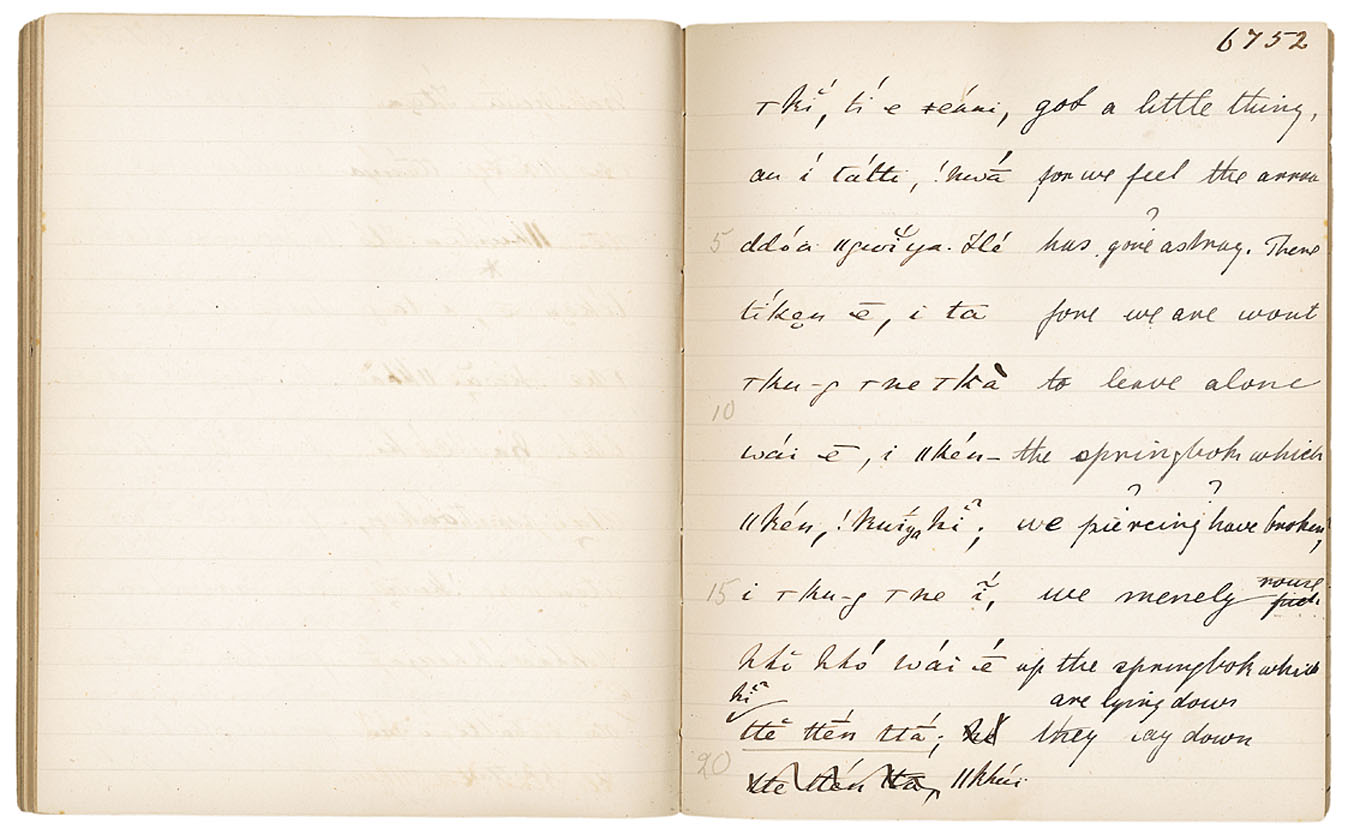 6752
ꞇkĭ́, tí e ꞇeánni, got a little thing,
au í tátti, !nwā́ for we feel the arrow
?
5 ddóä ‖gwĭ́ya. Hé has gone astray. There
tíkẹn ē, i tā fore we are wont
ꞇku-g ꞇne ꞇkā̀ to leave alone
10
wái ē, i ‖kén- the springbok which
? ?
‖kén, !kuíya ki; we piercing have broken;
rouse
15 i ꞇku-g ꞇne ĭ́, we merely
hhĭ hhó wái é up the springbok which
ki are lying down
ttĕ ttén ttá; they lay down
20
‖khúï